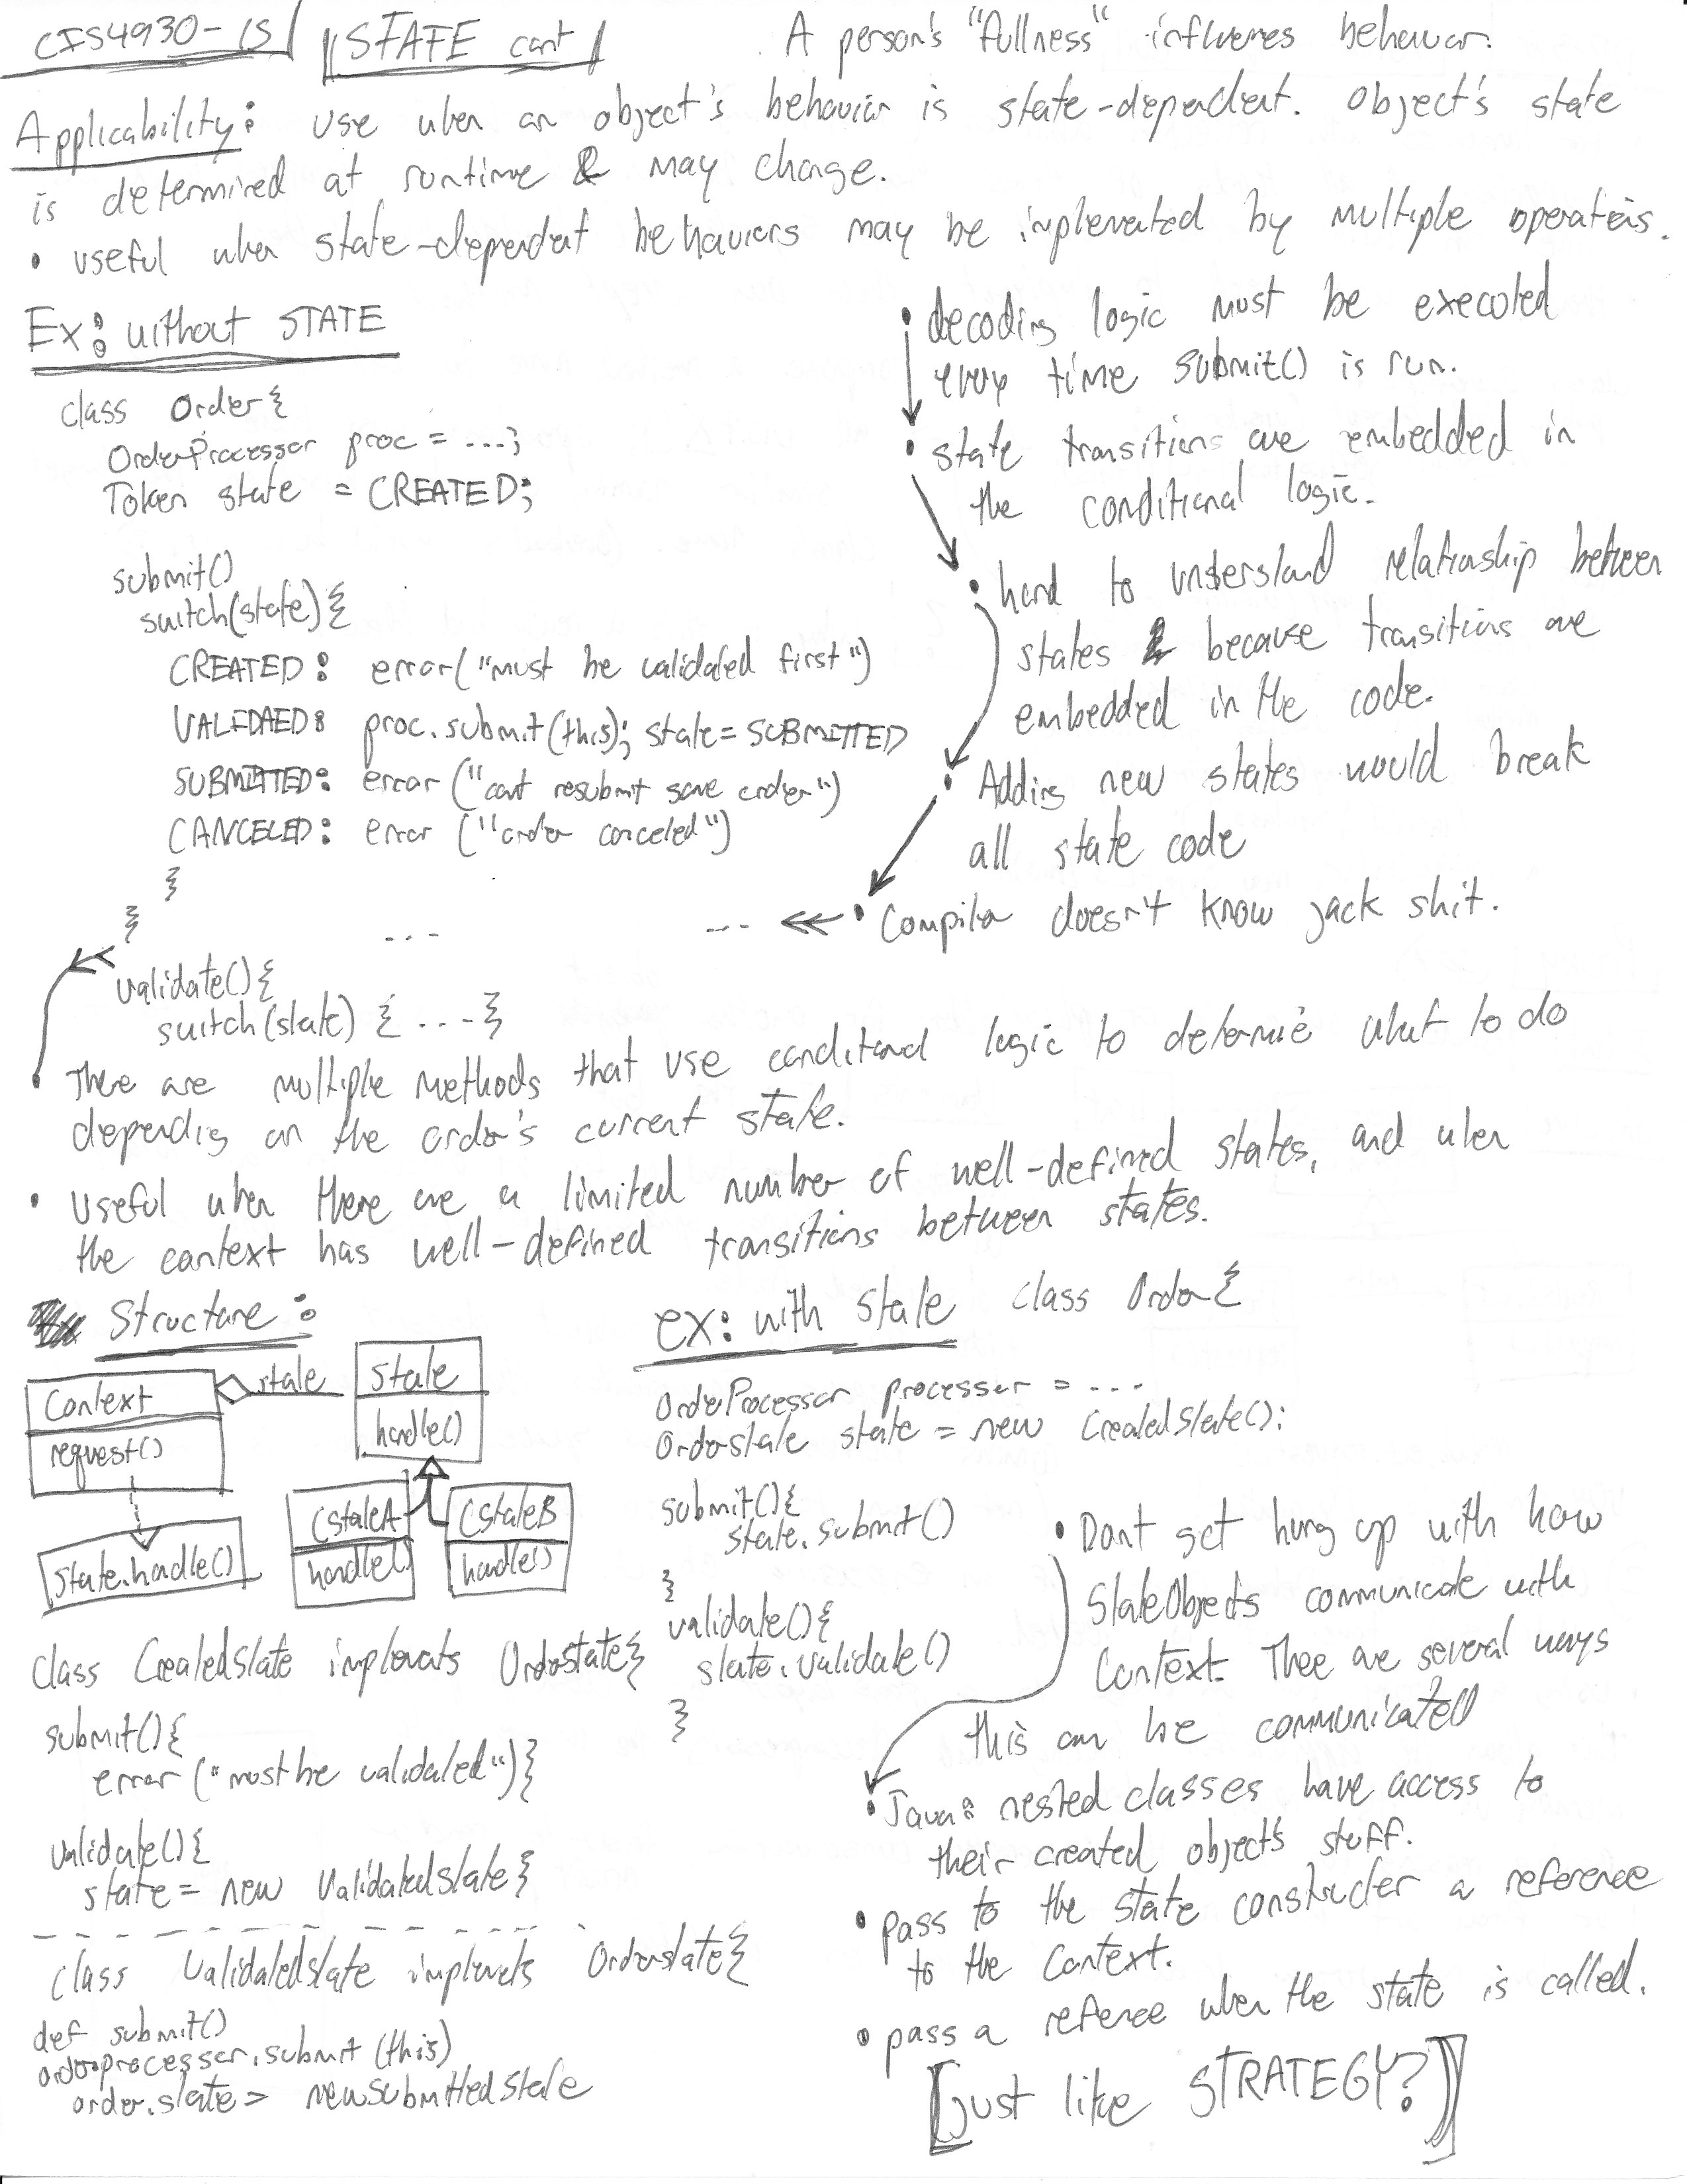 CIS4930-15
STATE cont
A person's "fullness" influences behavior.
Applicability: use when an object's behavior is state-dependent. Object's state
is determined at runtime & may change.
• useful when state-dependent behaviors may be implemented by multiple operations.
Ex: without STATE
class Order{
OrderProcessor proc = ...;
Token state = CREATED;
submit()
switch(state){
CREATED: error("must be validated first")
VALIDAED: proc.submit(this); state = SUBMITTED
SUBMITTED: error ("cant resubmit same order")
CANCELED: error ("order canceled")
}
}
...
validate(){
switch(state) { ... }
• decoding logic must be executed
every time submit() is run.
• state transitions are embedded in
the conditional logic.
• hard to understand relationship between
states because transitions are
embedded in the code.
• Adding new states would break
all state code
... • Compiler doesn't know jack shit.
• There are multiple methods that use conditional logic to determine what to do
depending on the order's current state.
• Useful when there are a limited number of well-defined states, and when
the context has well-defined transitions between states.
Structure:
Context
request()
state
State
handle()
state.handle()
CstateA
handle()
CstateB
handle()
ex: with state class Order{
OrderProcessor processor = ...
Orderstate state = new CreatedState();
submit(){
state.submit()
}
validate(){
state.validate()
}
class CreatedState implements Orderstate{
submit(){
error ("must be validated")}
validate(){
state = new ValidatedState}
class ValidatedState implements Orderstate{
def submit()
orderprocesser.submit (this)
order.state = newSubmittedState
• Dont get hung up with how
StateObjects communicate with
Context. There are several ways
this can be communicated
• Java: nested classes have access to
their created object's stuff.
• pass to the state constructer a reference
to the Context.
• pass a reference when the state is called.
[just like STRATEGY?]